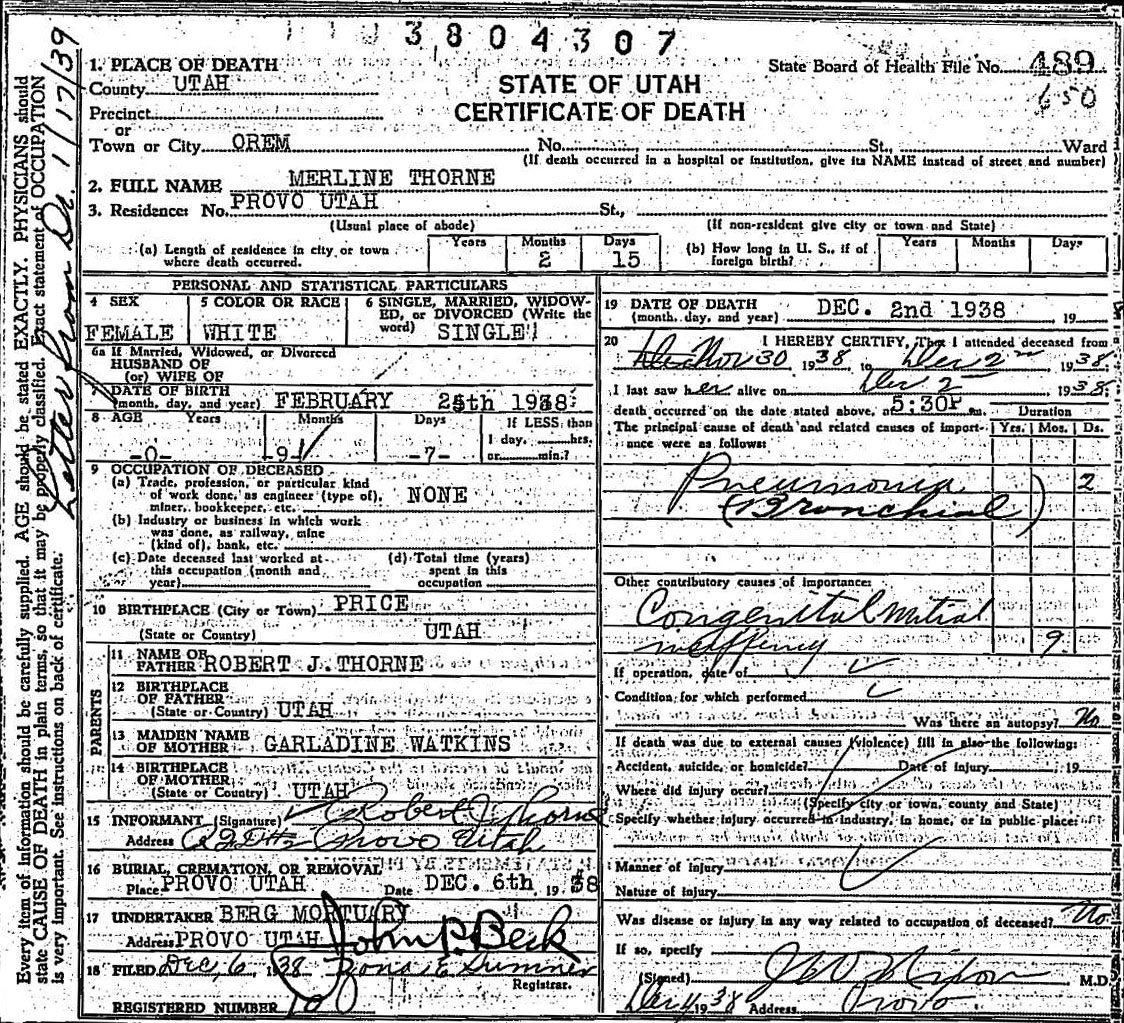 3804307
1. PLACE OF DEATH
County UTAH
Precinct
or
Town or City OREM No. St., Ward
(If death occurred in a hospital or institution, give its NAME instead of street and number)
STATE OF UTAH
CERTIFICATE OF DEATH
State Board of Health File No. 489
650
2. FULL NAME MERLINE THORNE
3. Residence: No. PROVO UTAH St.,
(Usual place of abode) (If non-resident give city or town and State)
(a) Length of residence in city or town where death occurred. Years Months 2 Days 15
(b) How long in U. S., if of foreign birth? Years Months Days
PERSONAL AND STATISTICAL PARTICULARS
4 SEX FEMALE
5 COLOR OR RACE WHITE
6 SINGLE, MARRIED, WIDOWED, or DIVORCED (Write the word) SINGLE
6a If Married, Widowed, or Divorced
HUSBAND OF
(or) WIFE OF
7 DATE OF BIRTH
(month, day, and year) FEBRUARY 25th 1938
8 AGE Years -0- Months -9- Days -7-
If LESS than
1 day, hrs.
or min.?
9 OCCUPATION OF DECEASED
(a) Trade, profession, or particular kind
of work done, as engineer (type of), NONE
miner, bookkeeper, etc.
(b) Industry or business in which work
was done, as railway, mine
(kind of), bank, etc.
(c) Date deceased last worked at
this occupation (month and
year)
(d) Total time (years)
spent in this
occupation
10 BIRTHPLACE (City or Town) PRICE
(State or Country) UTAH
PARENTS
11 NAME OF
FATHER ROBERT J. THORNE
12 BIRTHPLACE
OF FATHER
(State or Country) UTAH
13 MAIDEN NAME
OF MOTHER GARLADINE WATKINS
14 BIRTHPLACE
OF MOTHER
(State or Country) UTAH
15 INFORMANT (Signature) Robert J Thorne
Address Provo Utah
16 BURIAL, CREMATION, OR REMOVAL
Place PROVO UTAH Date DEC. 6th, 1938
17 UNDERTAKER BERG MORTUARY
Address PROVO UTAH
John P. Beck
18 FILED Dec, 6, 1938 Zona E Sumner
Registrar.
REGISTERED NUMBER
19 DATE OF DEATH
(month, day, and year) DEC. 2nd 1938 19
20 I HEREBY CERTIFY, That I attended deceased from
Nov 30 1938 to Dec 2 1938
I last saw her alive on Dec 2 1938
death occurred on the date stated above, at 5:30P m.
The principal cause of death and related causes of importance were as follows:
Duration
Yrs. Mos. Ds.
Pneumonia 2
(Bronchial)
Other contributory causes of importance:
Congenital Mitral
9
If operation, date of
Condition for which performed
Was there an autopsy? No
If death was due to external causes (violence) fill in also the following:
Accident, suicide, or homicide? Date of injury 19
Where did injury occur?
(Specify city or town, county and State)
Specify whether injury occurred in industry, in home, or in public place:
Manner of injury
Nature of injury
Was disease or injury in any way related to occupation of deceased? No
If so, specify
(Signed) M.D.
Dec 4 1938 Address Provo.
Every item of information should be carefully supplied. AGE should be stated EXACTLY. PHYSICIANS should
state CAUSE OF DEATH in plain terms, so that it may be properly classified. Exact statement of OCCUPATION
is very important. See instructions on back of certificate.
Letter from Dr. 1/17/39